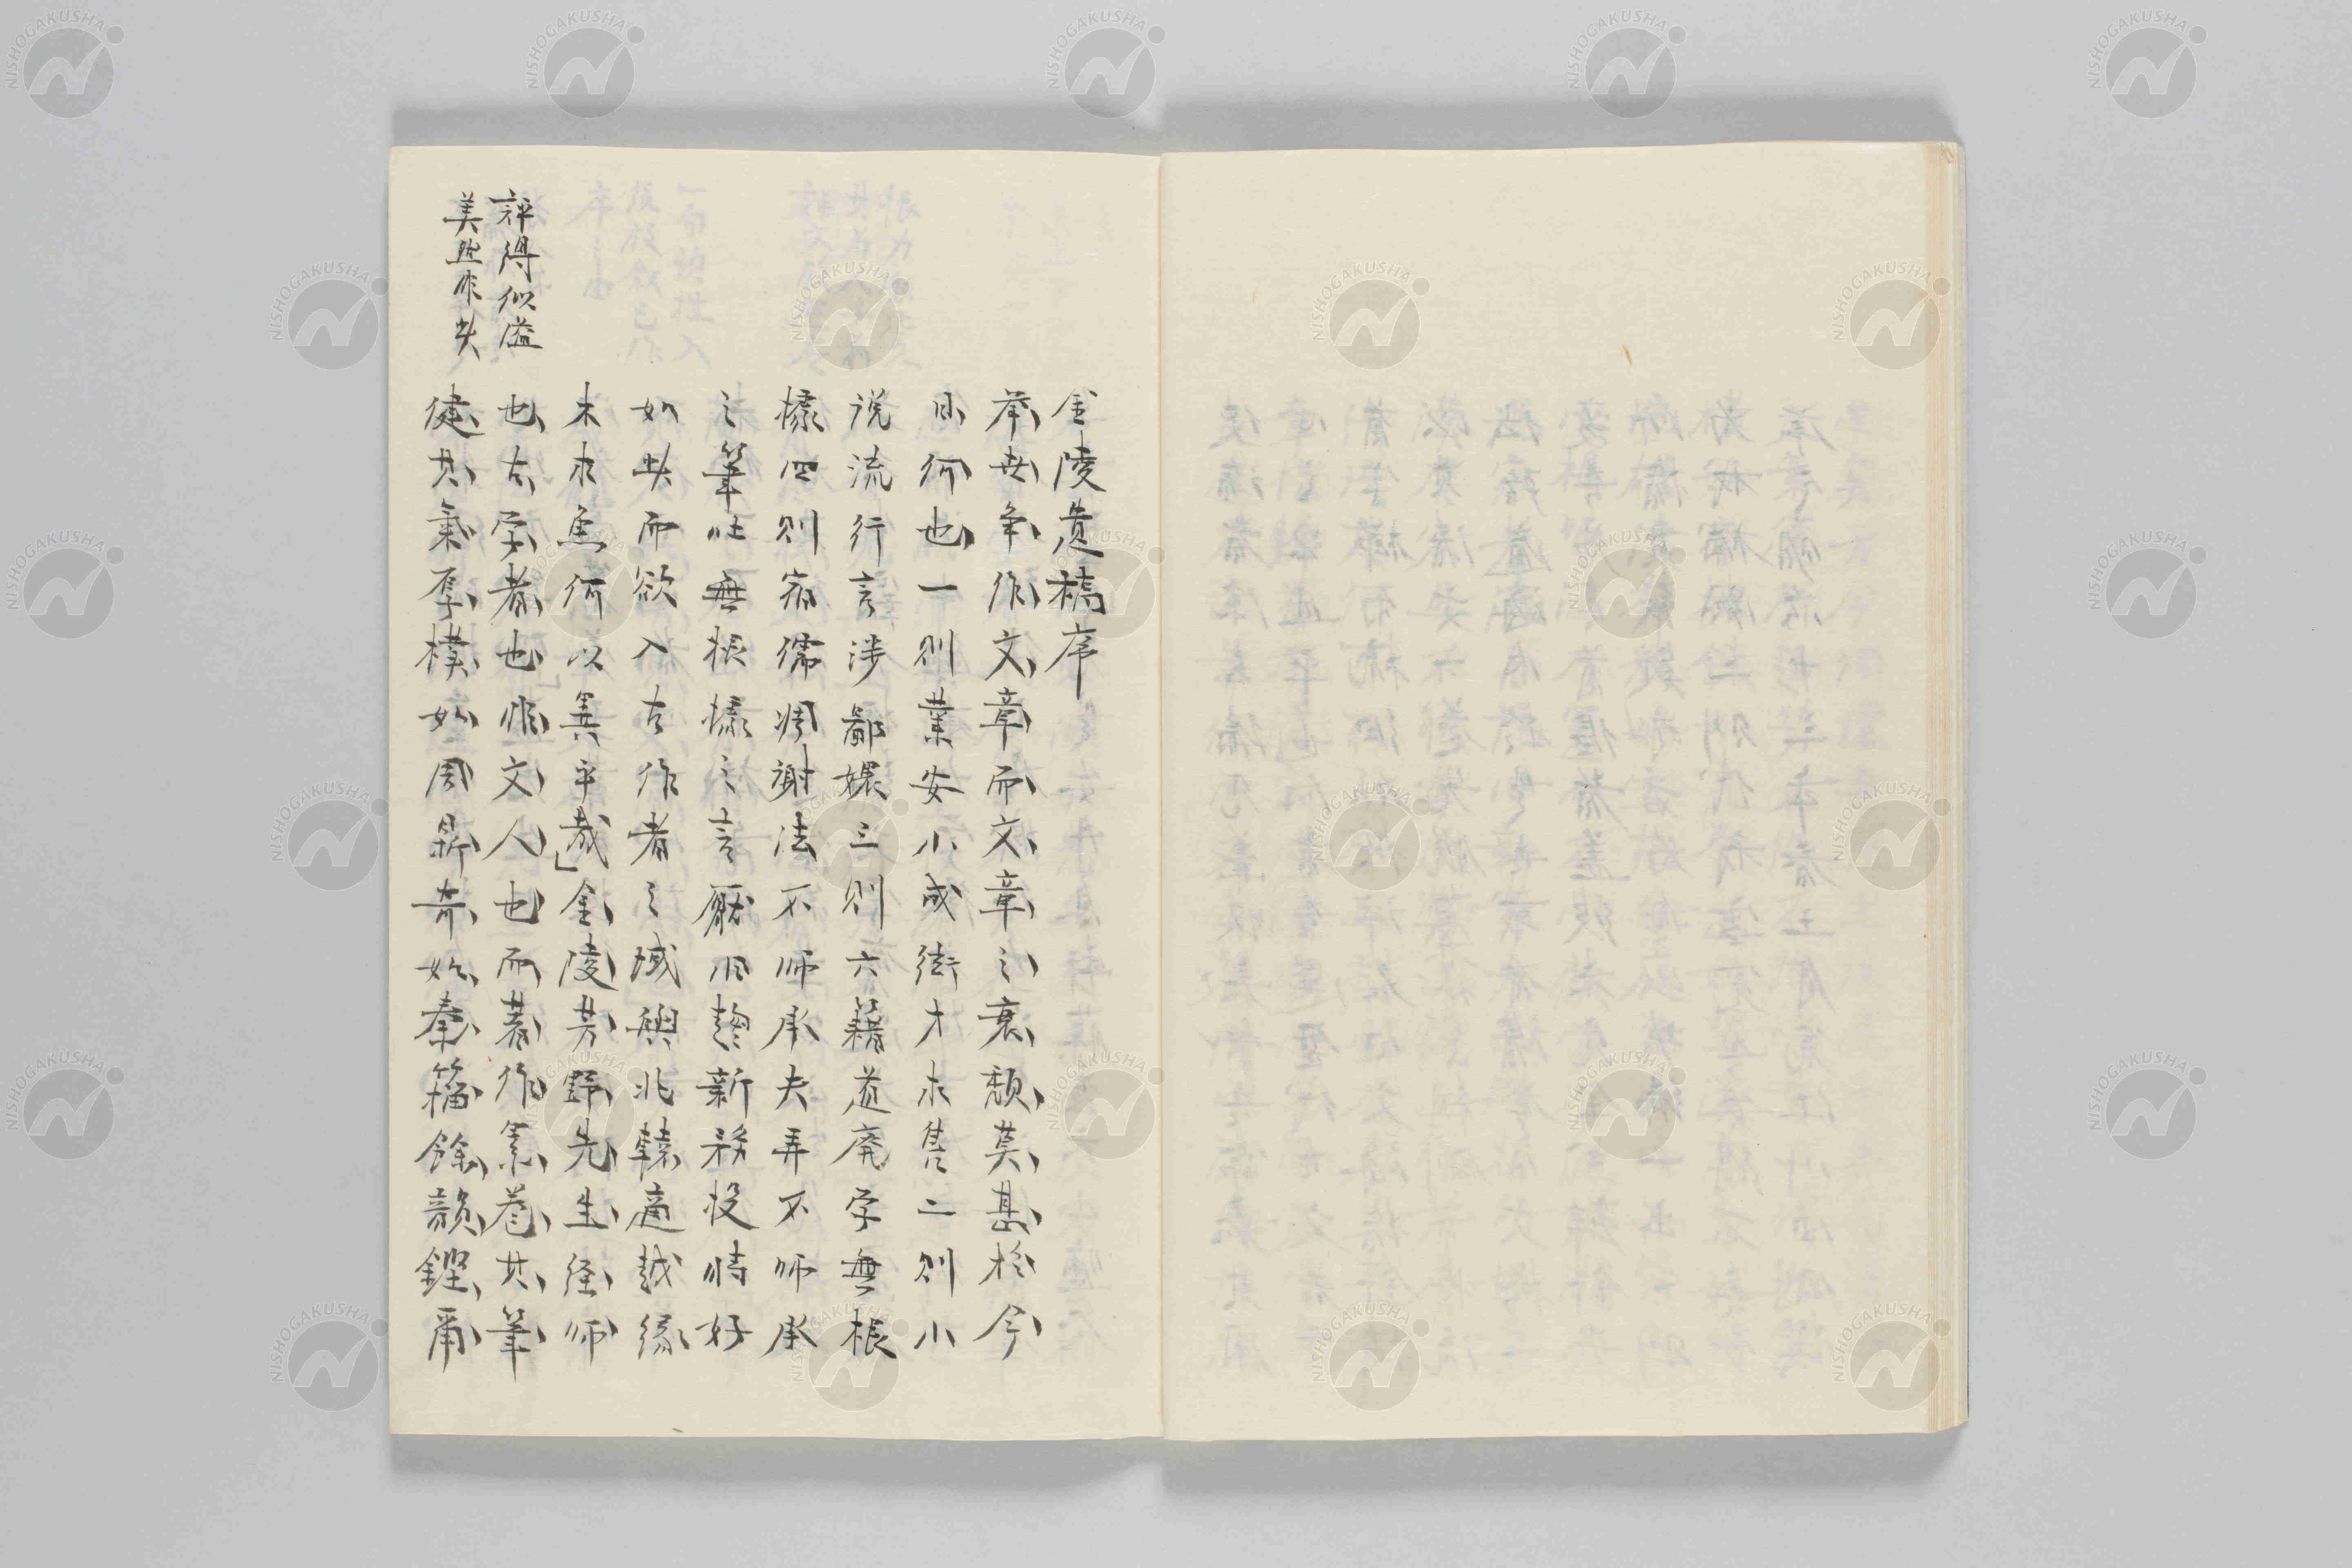 金陵遺稿序
挙世争作文章而文章之衰頽莫甚於今
日何也一則業安小成街才求售二則小
説流行言渉鄙嫚三則六籍道廃学無根
據四則宿儒凋謝法不師承夫弄不師承
之筆吐無根據之言厭旧趨新務投時好
如此而欲入古作者之域輿北轅適越縁
木求魚何以異乎哉金陵芳野先生経師
也古学者也惟文人也而著作累巻其筆
健其気厚樸如周鼎奇如秦籀餘韻鏗爾
評得似溢
美然非失